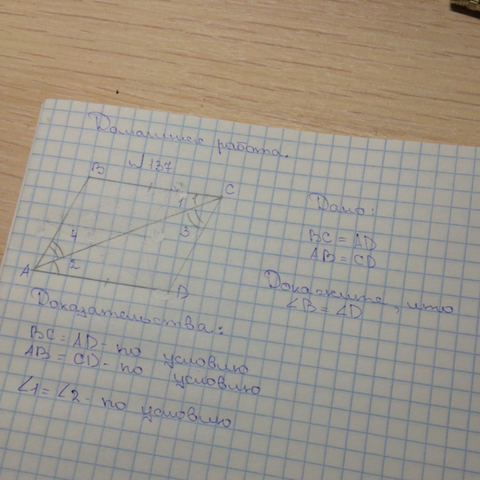 Домашняя работа.
№ 137
B
C
1
3
4
2
A
D
Дано:
BC = AD
AB = CD
Докажите, что
∠B = ∠D
Доказательства:
BC = AD - по условлю
AB = CD - по условлю
∠1 = ∠2 - по условлю